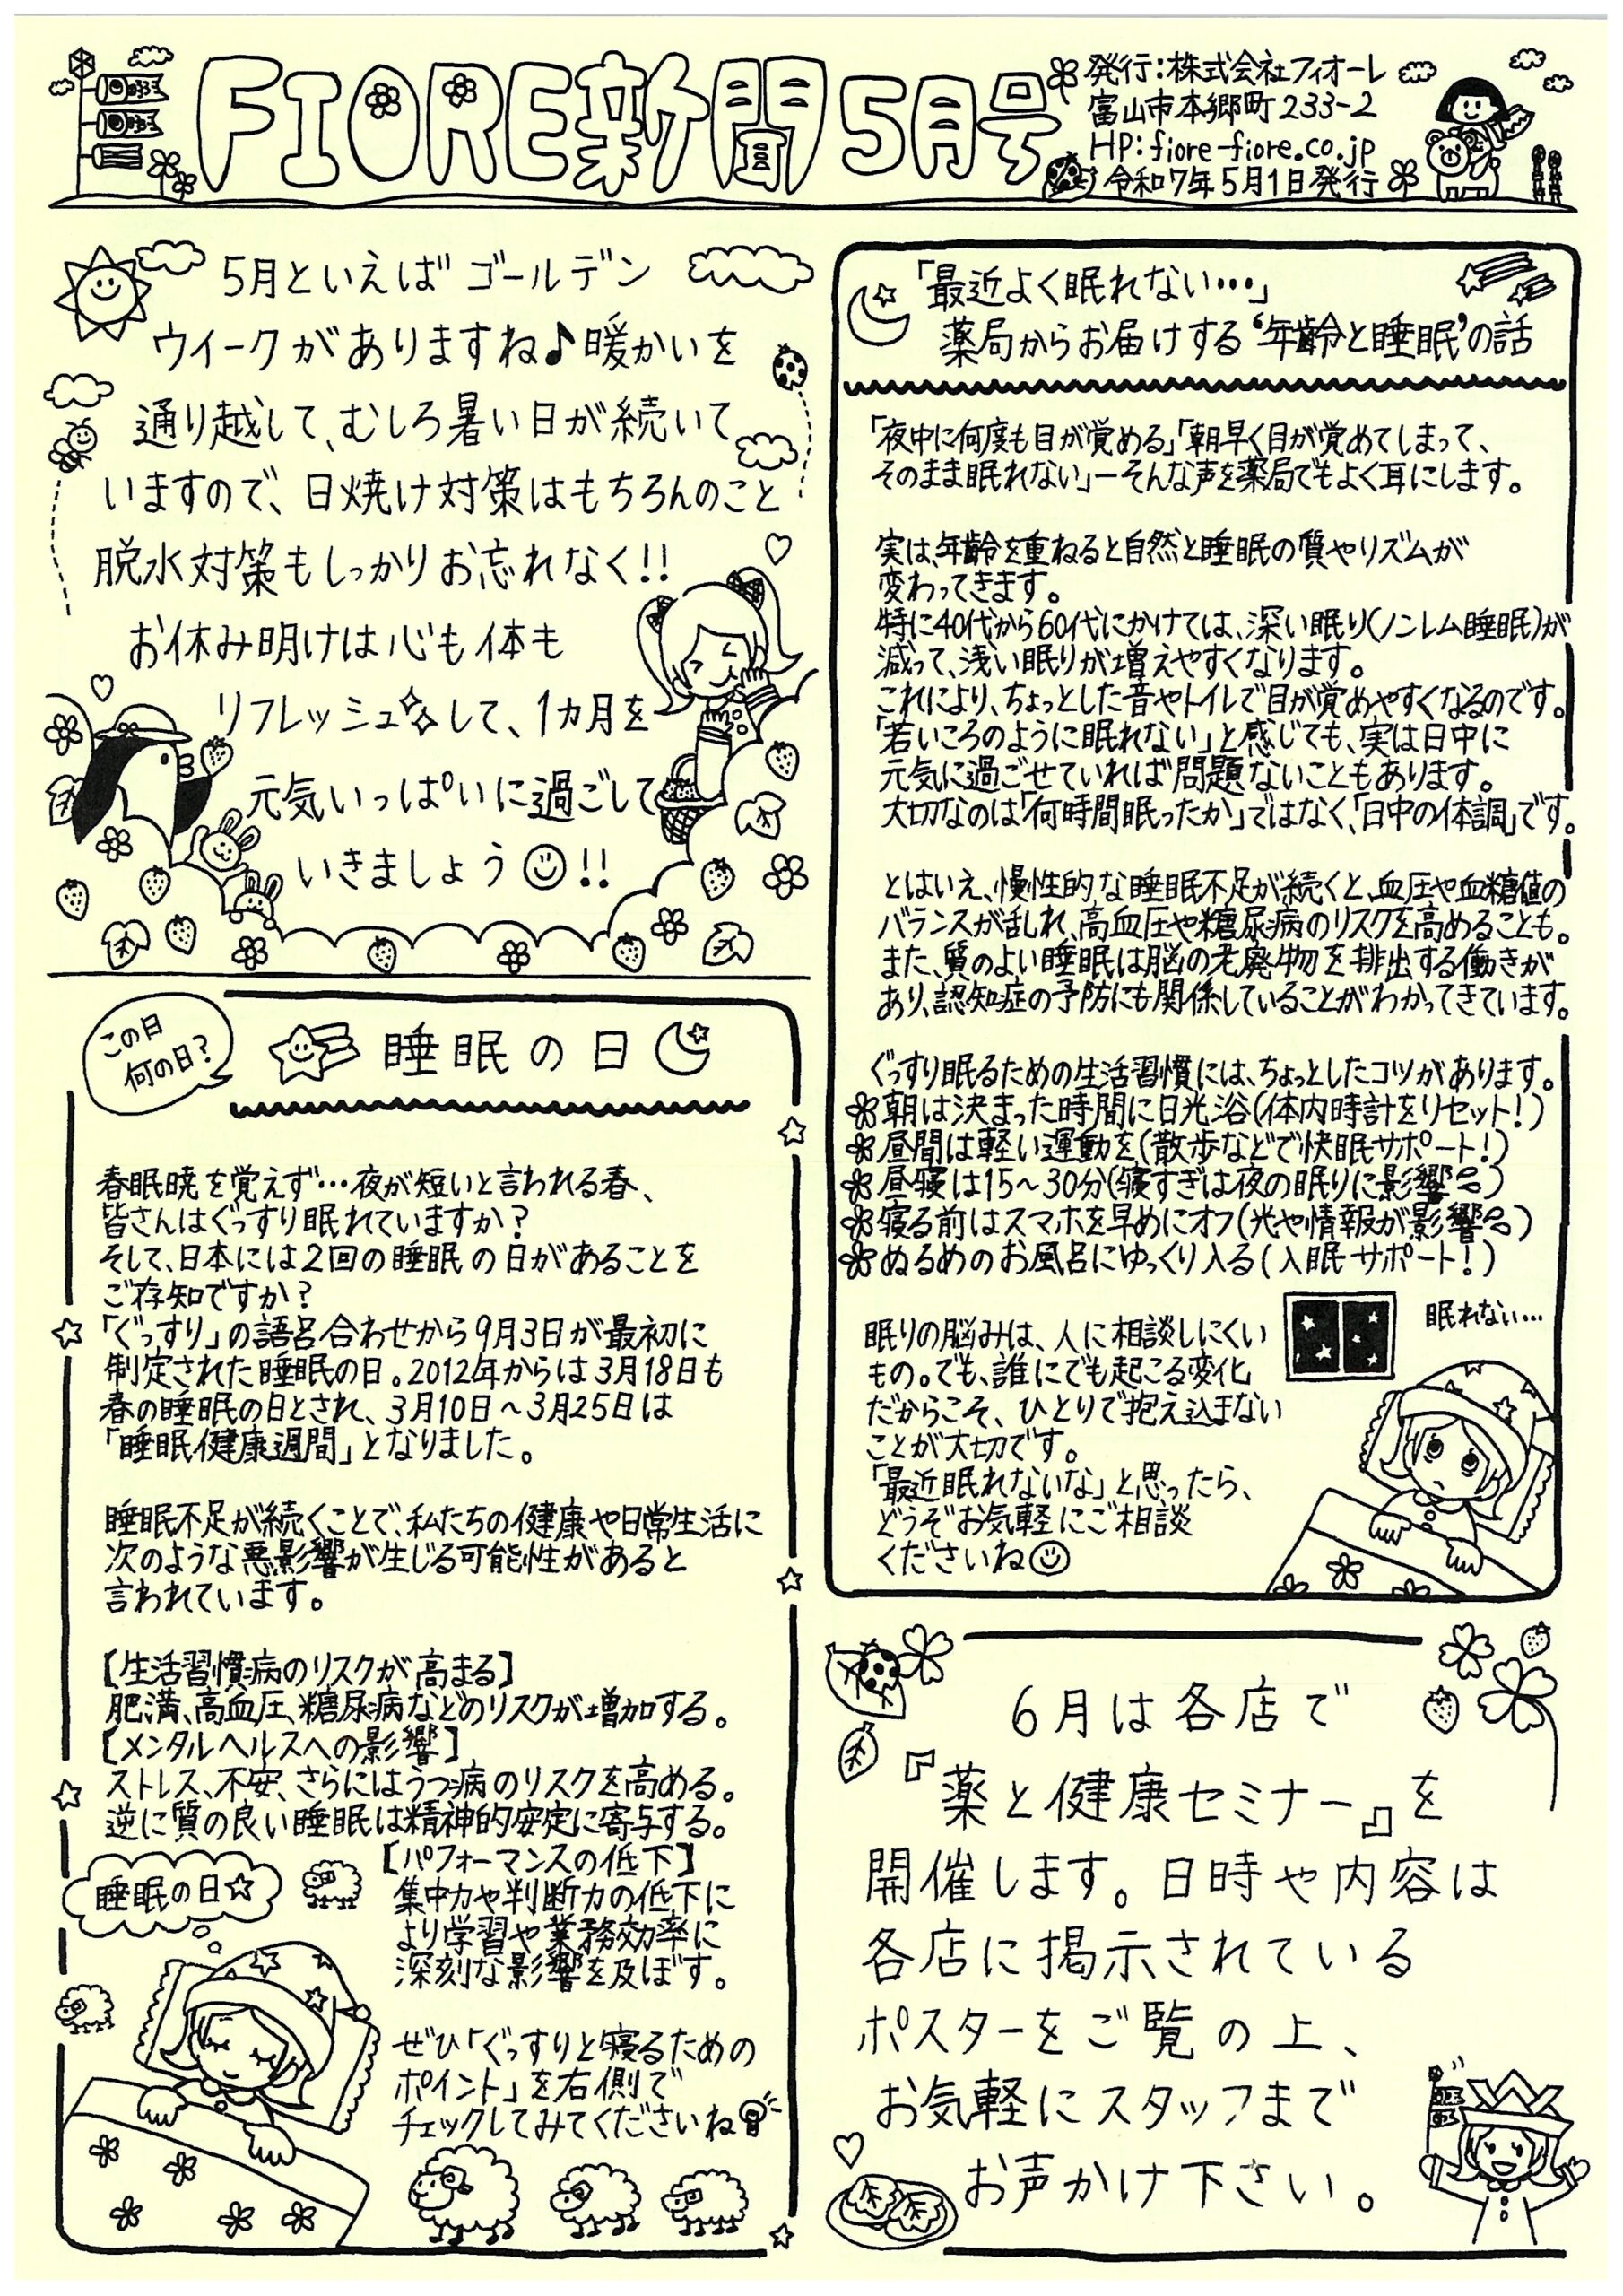 FIORE新聞5月号
発行:株式会社フィオーレ
富山市本郷町233-2
HP:fiore-fiore.co.jp
令和7年5月1日発行
5月といえばゴールデン
ウイークがありますね♪暖かいを
通り越して、むしろ暑い日が続いて
いますので、日焼け対策はもちろんのこと
脱水対策もしっかりお忘れなく!!
お休み明けは心も体も
リフレッシュして、1カ月を
元気いっぱいに過ごして
いきましょう☺!!
この日
何の日?
睡眠の日
春眠暁を覚えず…夜が短いと言われる春、
皆さんはぐっすり眠れていますか?
そして、日本には2回の睡眠の日があることを
ご存知ですか?
「ぐっすり」の語呂合わせから9月3日が最初に
制定された睡眠の日。2012年からは3月18日も
春の睡眠の日とされ、3月10日~3月25日は
「睡眠健康週間」となりました。
睡眠不足が続くことで、私たちの健康や日常生活に
次のような悪影響が生じる可能性があると
言われています。
【生活習慣病のリスクが高まる】
肥満、高血圧、糖尿病などのリスクが増加する。
【メンタルヘルスへの影響】
ストレス、不安、さらにはうつ病のリスクを高める。
逆に質の良い睡眠は精神的安定に寄与する。
【パフォーマンスの低下】
集中力や判断力の低下に
より学習や業務効率に
深刻な影響を及ぼす。
睡眠の日☆
ぜひ「ぐっすりと寝るための
ポイント」を右側で
チェックしてみてくださいね
「最近よく眠れない…」
薬局からお届けする‘年齢と睡眠’の話
「夜中に何度も目が覚める」「朝早く目が覚めてしまって、
そのまま眠れない」ーそんな声を薬局でもよく耳にします。
実は、年齢を重ねると自然と睡眠の質やリズムが
変わってきます。
特に40代から60代にかけては、深い眠り(ノンレム睡眠)が
減って、浅い眠りが増えやすくなります。
これにより、ちょっとした音やトイレで目が覚めやすくなるのです。
「若いころのように眠れない」と感じても、実は日中に
元気に過ごせていれば問題ないこともあります。
大切なのは「何時間眠ったか」ではなく、「日中の体調」です。
とはいえ、慢性的な睡眠不足が続くと、血圧や血糖値の
バランスが乱れ、高血圧や糖尿病のリスクを高めることも。
また、質のよい睡眠は脳の老廃物を排出する働きが
あり、認知症の予防にも関係していることがわかってきています。
ぐっすり眠るための生活習慣には、ちょっとしたコツがあります。
朝は決まった時間に日光浴(体内時計をリセット!)
昼間は軽い運動を(散歩などで快眠サポート!)
昼寝は15~30分(寝すぎは夜の眠りに影響)
寝る前はスマホを早めにオフ(光や情報が影響)
ぬるめのお風呂にゆっくり入る(入眠サポート!)
眠りの脳みは、人に相談しにくい
もの。でも、誰にでも起こる変化
だからこそ、ひとりで抱え込まない
ことが大切です。
「最近眠れないな」と思ったら、
どうぞお気軽にご相談
くださいね☺
眠れない…
6月は各店で
『薬と健康セミナー』を
開催します。日時や内容は
各店に掲示されている
ポスターをご覧の上、
お気軽にスタッフまで
お声かけ下さい。